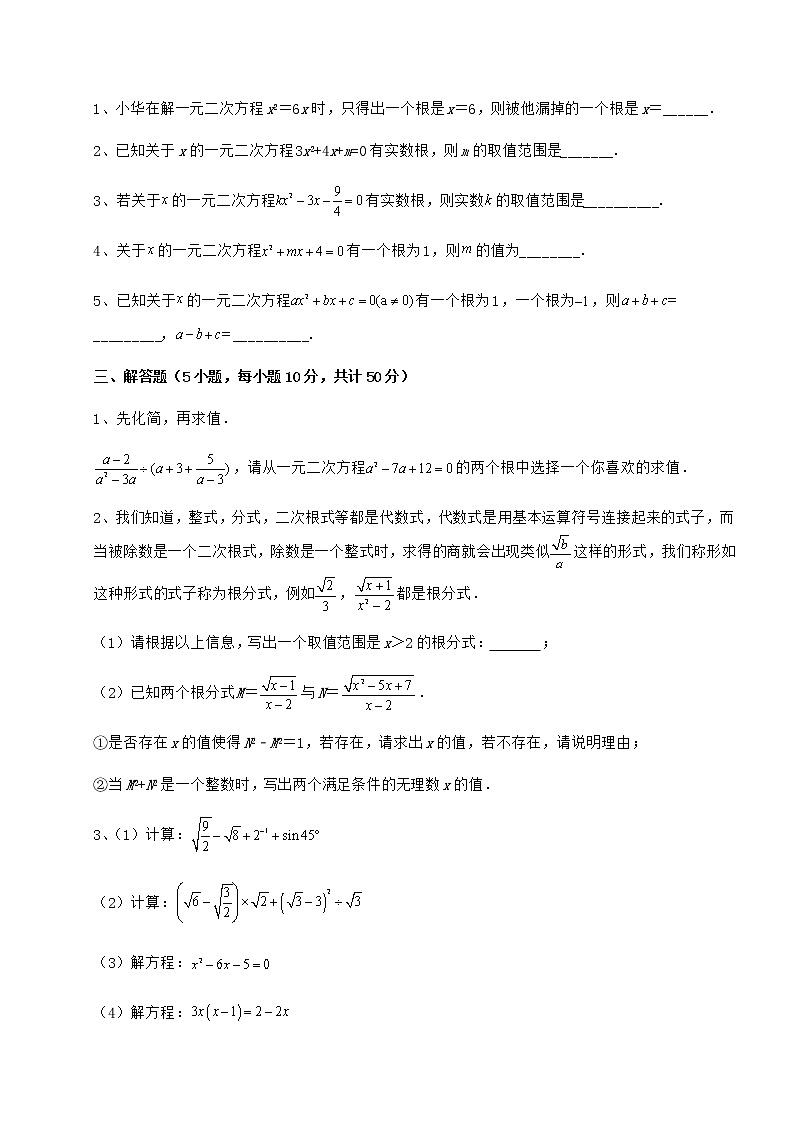 1、小华在解一元二次方程 x²＝6x 时，只得出一个根是 x＝6，则被他漏掉的一个根是 x＝______．
2、已知关于 x 的一元二次方程3x²+4x+m=0有实数根，则 m 的取值范围是_______．
3、若关于 x 的一元二次方程 kx² − 3x − 9/4 = 0 有实数根，则实数 k 的取值范围是__________．
4、关于 x 的一元二次方程 x² + mx + 4 = 0 有一个根为1，则 m 的值为________．
5、已知关于 x 的一元二次方程 ax² + bx + c = 0(a ≠ 0) 有一个根为1，一个根为−1，则 a + b + c=
_________，a − b + c=__________．
三、解答题（5小题，每小题10分，共计50分）
1、先化简，再求值．
(a − 2)/(a² − 3a) ÷ (a + 3 + 5/(a − 3))，请从一元二次方程 a² − 7a + 12 = 0 的两个根中选择一个你喜欢的求值．
2、我们知道，整式，分式，二次根式等都是代数式，代数式是用基本运算符号连接起来的式子，而
当被除数是一个二次根式，除数是一个整式时，求得的商就会出现类似 √b/a 这样的形式，我们称形如
这种形式的式子称为根分式，例如 √2/3，√(x + 1)/(x² − 2) 都是根分式．
（1）请根据以上信息，写出一个取值范围是 x＞2 的根分式：_______；
（2）已知两个根分式 M＝√(x − 1)/(x − 2) 与 N＝√(x² − 5x + 7)/(x − 2)．
①是否存在 x 的值使得 N²﹣M²＝1，若存在，请求出 x 的值，若不存在，请说明理由；
②当 M²+N² 是一个整数时，写出两个满足条件的无理数 x 的值．
3、（1）计算：√(9/2) − √8 + 2⁻¹ + sin45°
（2）计算：(√6 − √(3/2)) × √2 + (√3 − 3)² ÷ √3
（3）解方程：x² − 6x − 5 = 0
（4）解方程：3x(x − 1) = 2 − 2x